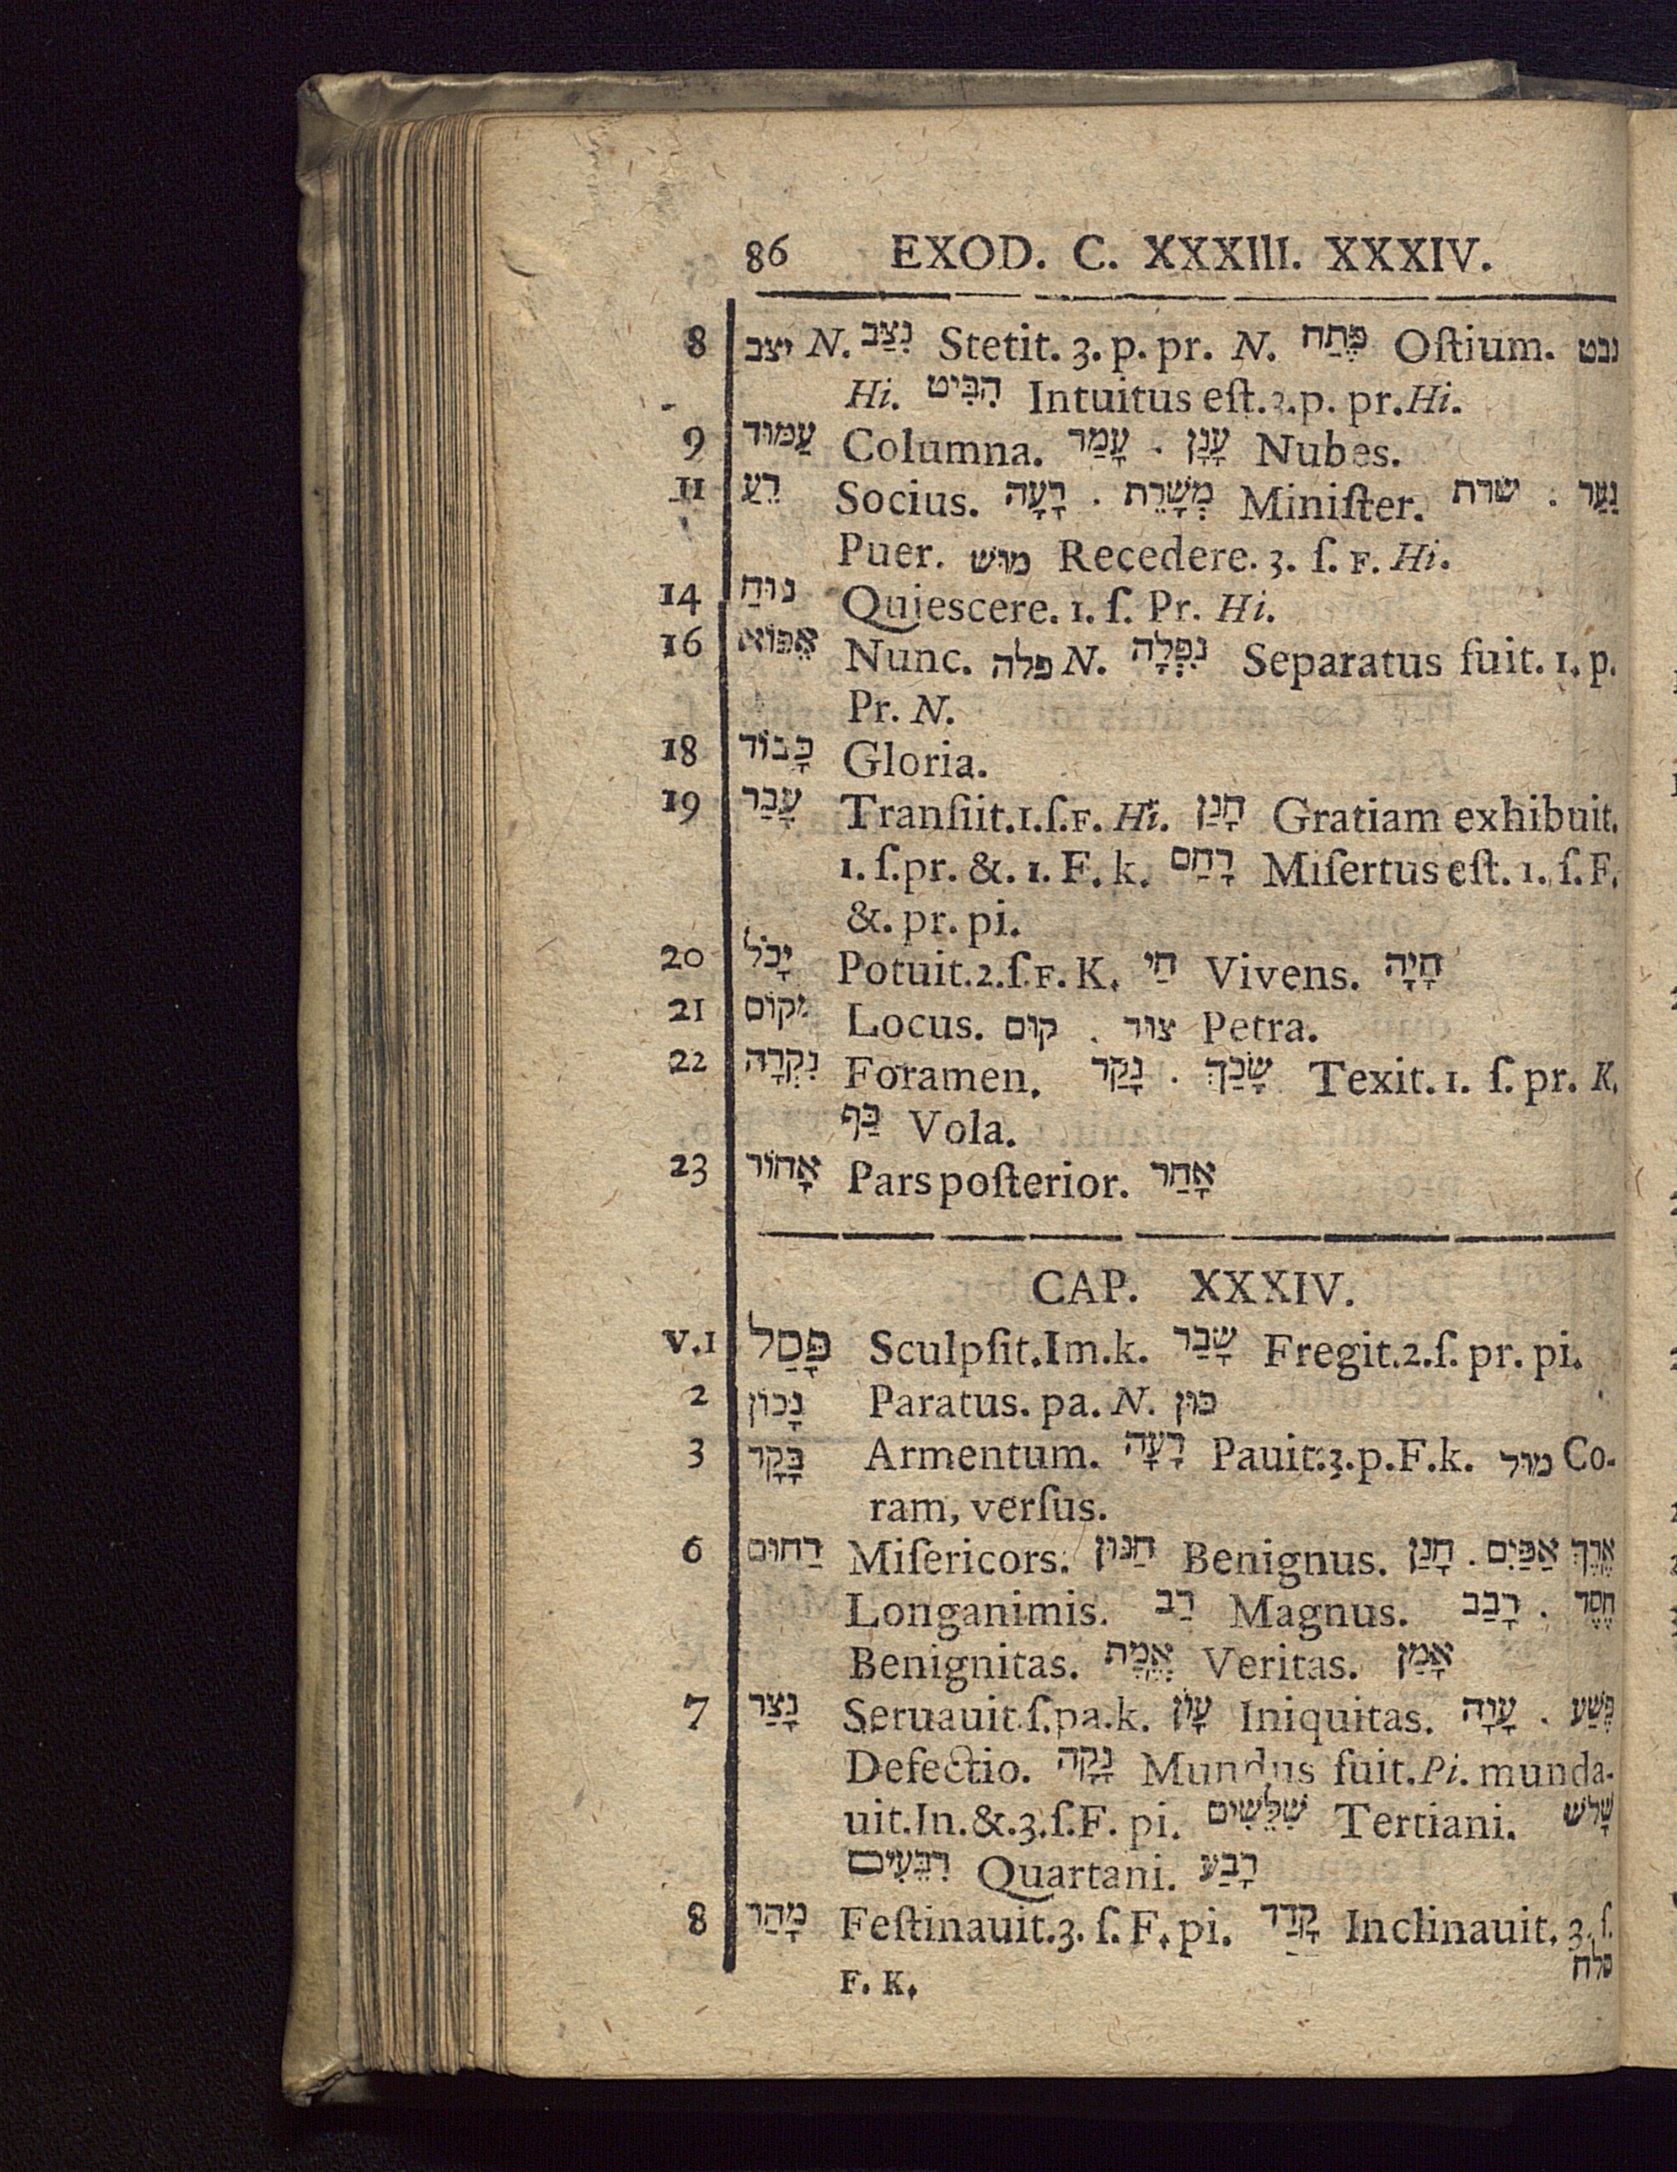 86 EXOD. C. XXXIII. XXXIV.
8 יצב N. נִצַּב Stetit. 3. p. pr. N. פֶּתַח Oſtium. נבט
Hi. הִבִּיט Intuitus eſt. 3. p. pr. Hi.
9 עַמּוּד Columna. עָמַד . עָנָן Nubes.
11 רֵעַ Socius. רָעָה . מְשָׁרֵת Miniſter. שרת . נַעַר
Puer. מוּשׁ Recedere. 3. ſ. F. Hi.
14 נוּחַ Quieſcere. 1. ſ. Pr. Hi.
16 אֵפוֹא Nunc. פלה N. נִפְלָה Separatus fuit. 1. p.
Pr. N.
18 כָּבוֹד Gloria.
19 עָבַר Tranſiit. 1. ſ. F. Hi. חָנַן Gratiam exhibuit.
1. ſ. pr. &. 1. F. k. רָחַם Miſertus eſt. 1. ſ. F.
&. pr. pi.
20 יָכֹל Potuit. 2. ſ. F. K. חַי Vivens. חָיָה
21 מָקוֹם Locus. קוּם . צוּר Petra.
22 נִקְרָה Foramen. נָקַר . שָׂכַךְ Texit. 1. ſ. pr. K.
כַּף Vola.
23 אָחוֹר Pars poſterior. אָחַר
CAP. XXXIV.
V. 1 פָּסַל Sculpſit. Im. k. שָׁבַר Fregit. 2. ſ. pr. pi.
2 נָכוֹן Paratus. pa. N. כּוּן
3 בָּקָר Armentum. רָעָה Pauit. 3. p. F. k. מוּל Co-
ram, verſus.
6 רַחוּם Miſericors. חַנּוּן Benignus. חָנַן . אֶרֶךְ אַפַּיִם
Longanimis. רַב Magnus. רָבַב . חֶסֶד
Benignitas. אֱמֶת Veritas. אָמַן
7 נָצַר Seruauit. ſ. pa. k. עָוֹן Iniquitas. עָוָה . פֶּשַׁע
Defectio. נָקָה Mundus fuit. Pi. munda-
uit. In. &. 3. ſ. F. pi. שִׁלֵּשִׁים Tertiani. שָׁלשׁ
רִבֵּעִים Quartani. רָבַע
8 מָהַר Feſtinauit. 3. ſ. F. pi. קָדַד Inclinauit. 3. ſ.
F. K.
סלח